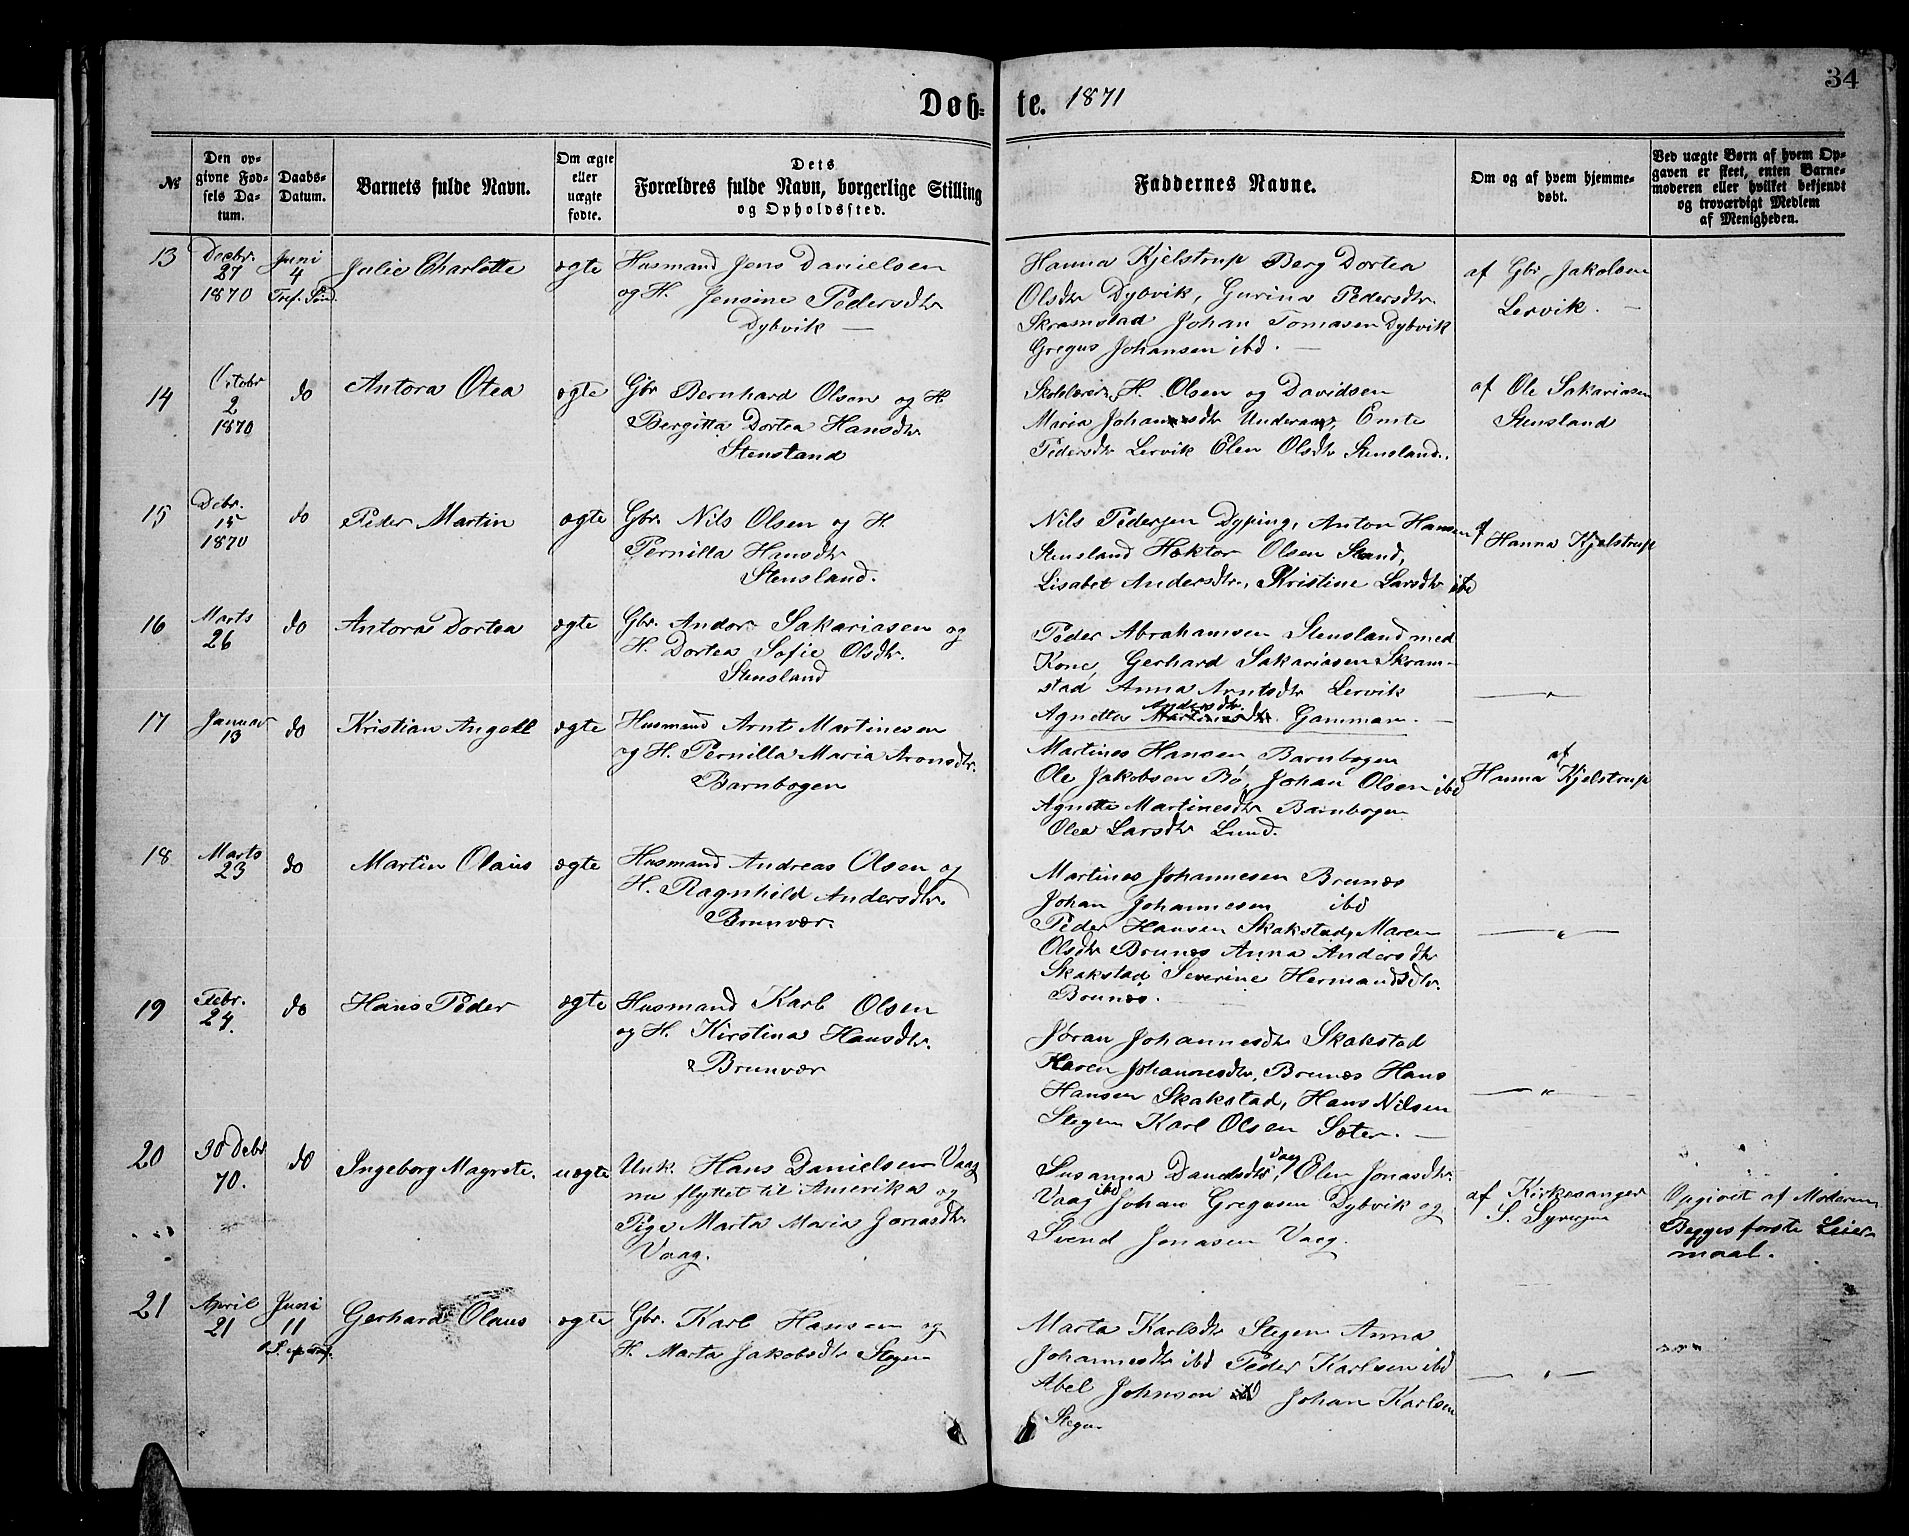 34
Døb= te. 1871
№
Den opgivne Fødsels Datum.
Daabs-Datum.
Barnets fulde Navn.
Om ægte eller uægte fødte.
Dets Forældres fulde Navn, borgerlige Stilling og Opholdssted.
Faddernes Navne.
Om og af hvem hjemmedøbt.
Ved uægte Børn af hvem Opgaven er skeet, enten Barnemoderen eller hvilket bekjendt og troværdigt Medlem af Menigheden.
13
Decbr. 27 1870
Juni 4 Tref. Sønd.
Julie Charlotte
ægte
Husmand Jens Danielsen
og H. Jensine Pedersdtr
Dybvik —
Hanna Kjelstrup Berg Dortea
Olsdtr Dybvik, Gurina Pedersdtr.
Skramstad Johan Tomasen Dybvik
Gregus Johansen ibd. —
af Gbr. Jakobsen
Lervik. —
14
Octobr 2 1870
do
Antora Otea
ægte
Gbr Bernhard Olsen og H.
Bergitta Dortea Hansdtr
Stensland
H. Olsen og Davidsen
Maria Johannesdtr Emte
Pedersdtr Lervik Elen Olsdtr Stensland.
af Ole Sakariasen
Stensland
15
Debr. 15 1870
do
Peder Martin
ægte
Gbr. Nils Olsen og H.
Pernilla Hansdtr
Stensland.
Nils Pedersen Dyping, Anton Hansen
Stensland Hektor Olsen Stand,
Lisabet Andersdtr., Kristine Larsdtr ibd
af Hanna Kjelstrup
16
Marts 26
do
Antora Dortea
ægte
Gbr. Andor Sakariasen og
H. Dortea Sofie Olsdtr.
Stensland
Peder Abrahamsen Stensland med
Kone, Gerhard Sakariasen Skram-
stad Anna Arntsdtr Lervik
Agnetta Andersdtr. Gammam. —
— " —
17
Januar 13
do
Kristian Angell
ægte
Husmand Arnt Martinesen
og H. Pernilla Maria Aronsdtr.
Barnbogen
Martines Hansen Barnbogen
Ole Jakobsen Bø, Johan Olsen ibd
Agnette Martinesdtr Barnbogen
Olea Larsdtr Lund.
af
Hanna Kjelstrup
18
Marts 23
do
Martin Olaus
ægte
Husmand Andreas Olsen og
H. Ragnhild Andersdtr.
Brunvær.
Martines Johannesen Brunæs
Johan Johannesen ibd
Peder Hansen Skakstad, Maren
Olsdtr Brunæs Anna Andersdtr
Skakstad Severine Hermandsdtr.
Brunæs.
— " —
19
Febr. 24.
do
Hans Peder
ægte
Husmand Karl Olsen
og H. Kirstina Hansdtr.
Brunvær
Jøran Johannesdtr Skakstad
Karen Johannesdtr, Brunæs Hans
Hansen Skakstad, Hans Nilsen
Stegen Karl Olsen Sæter. —
— " —
20
30 Debr 70.
do
Ingeborg Magrete.
uægte
Unk. Hans Danielsen Vaag
nu flyttet til Amerika og
Pige Marta Maria Jonasdtr
Vaag.
Susanna Vaag, Elen Jonasdtr.
Vaag ibd Johan Gregusen Dybvik og
Svend Jonasen Vaag.
af Kirkesanger
S. Syversen
Opgivet af Moderen
Begges første Leier-
maal.
21
April 21
Juni 11
Gerhard Olaus
ægte
Gbr. Karl Hansen og
H. Marta Jakobsdtr Stegen
Marta Karlsdtr Stegen Anna
Johannesdtr ibd Peder Karlsen ibd
Abel Johnsen Johan Karlsen
Stegen
— " —